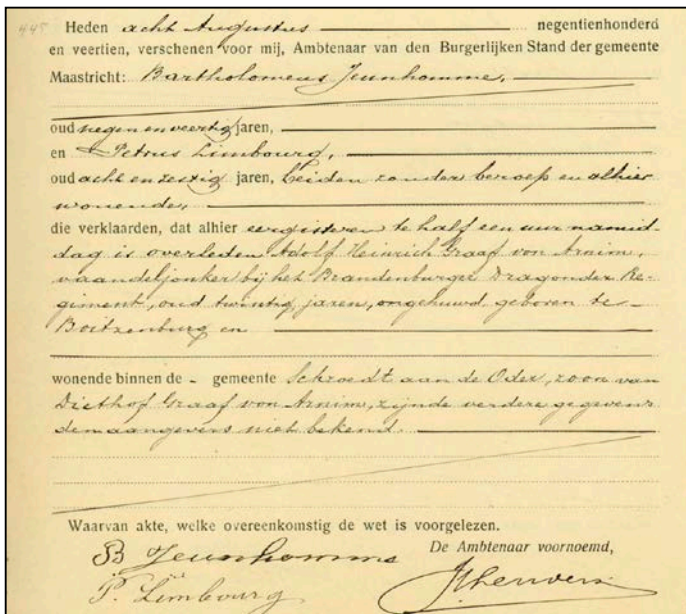 445
Heden acht Augustus negentienhonderd
en veertien, verschenen voor mij, Ambtenaar van den Burgerlijken Stand der gemeente
Maastricht: Bartholomeus Jeunhomme,
oud negen en veertig jaren,
en Petrus Limbourg,
oud acht en zestig jaren, beiden zonder beroep en alhier
wonende,
die verklaarden, dat alhier eergisteren te half een uur namid-
dag is overleden Adolf Heinrich Graaf von Arnim,
vaandeljonker bij het Brandenburger Dragonder Re-
giment, oud twintig jaren, ongehuwd geboren te
Boitzenburg en
wonende binnen de - gemeente Schwedt aan de Oder, zoon van
Diethof Graaf von Arnim, zijnde verdere gegevens
den aangevers niet bekend.
Waarvan akte, welke overeenkomstig de wet is voorgelezen.
B Jeunhomme De Ambtenaar voornoemd,
P. Limbourg